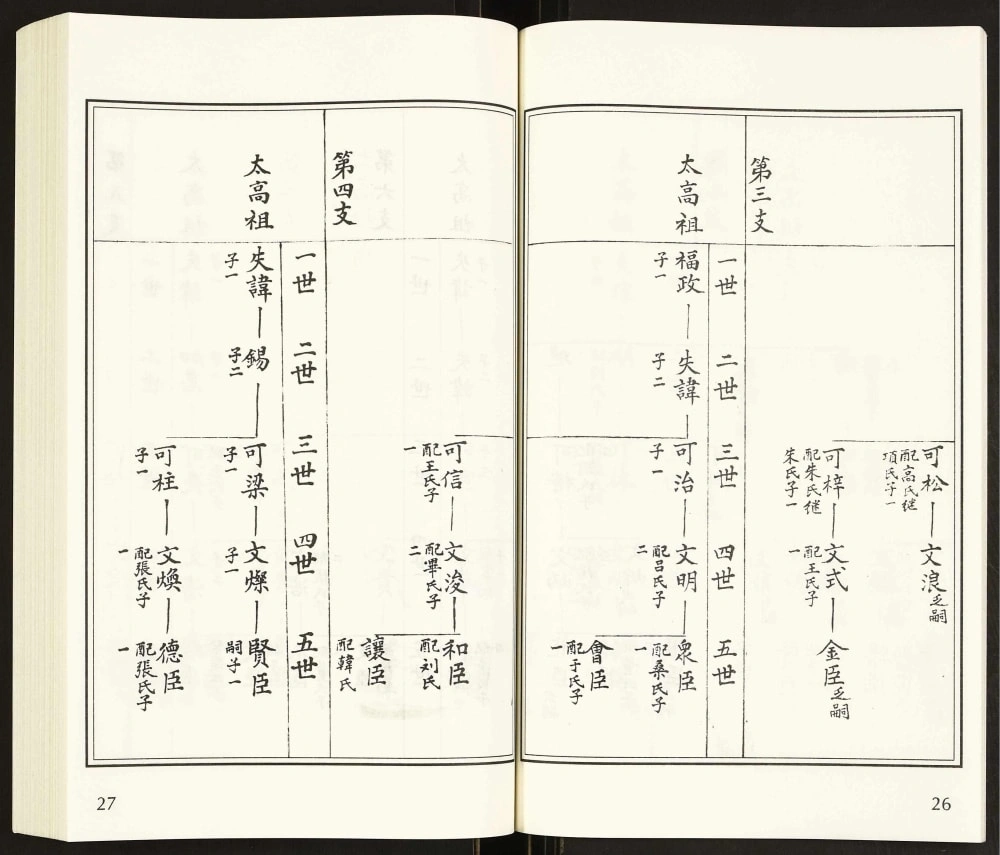 可松
配高氏继
項氏子一
文浪乏嗣
可梓
配朱氏继
朱氏子一
文式
配王氏子
一
金臣乏嗣
第三支
一世
二世
三世
四世
五世
太高祖
福政
子一
失諱
子二
可治
子一
文明
配吕氏子
二
衆臣
配桑氏子
一
會臣
配于氏子
一
26
可信
配王氏子
一
文浚
配畢氏子
二
和臣
配刘氏
讓臣
配韓氏
第四支
一世
二世
三世
四世
五世
太高祖
失諱
子一
錫
子二
可梁
子一
文燦
子一
賢臣
嗣子一
可柱
子一
文煥
配張氏子
一
德臣
配張氏子
一
27